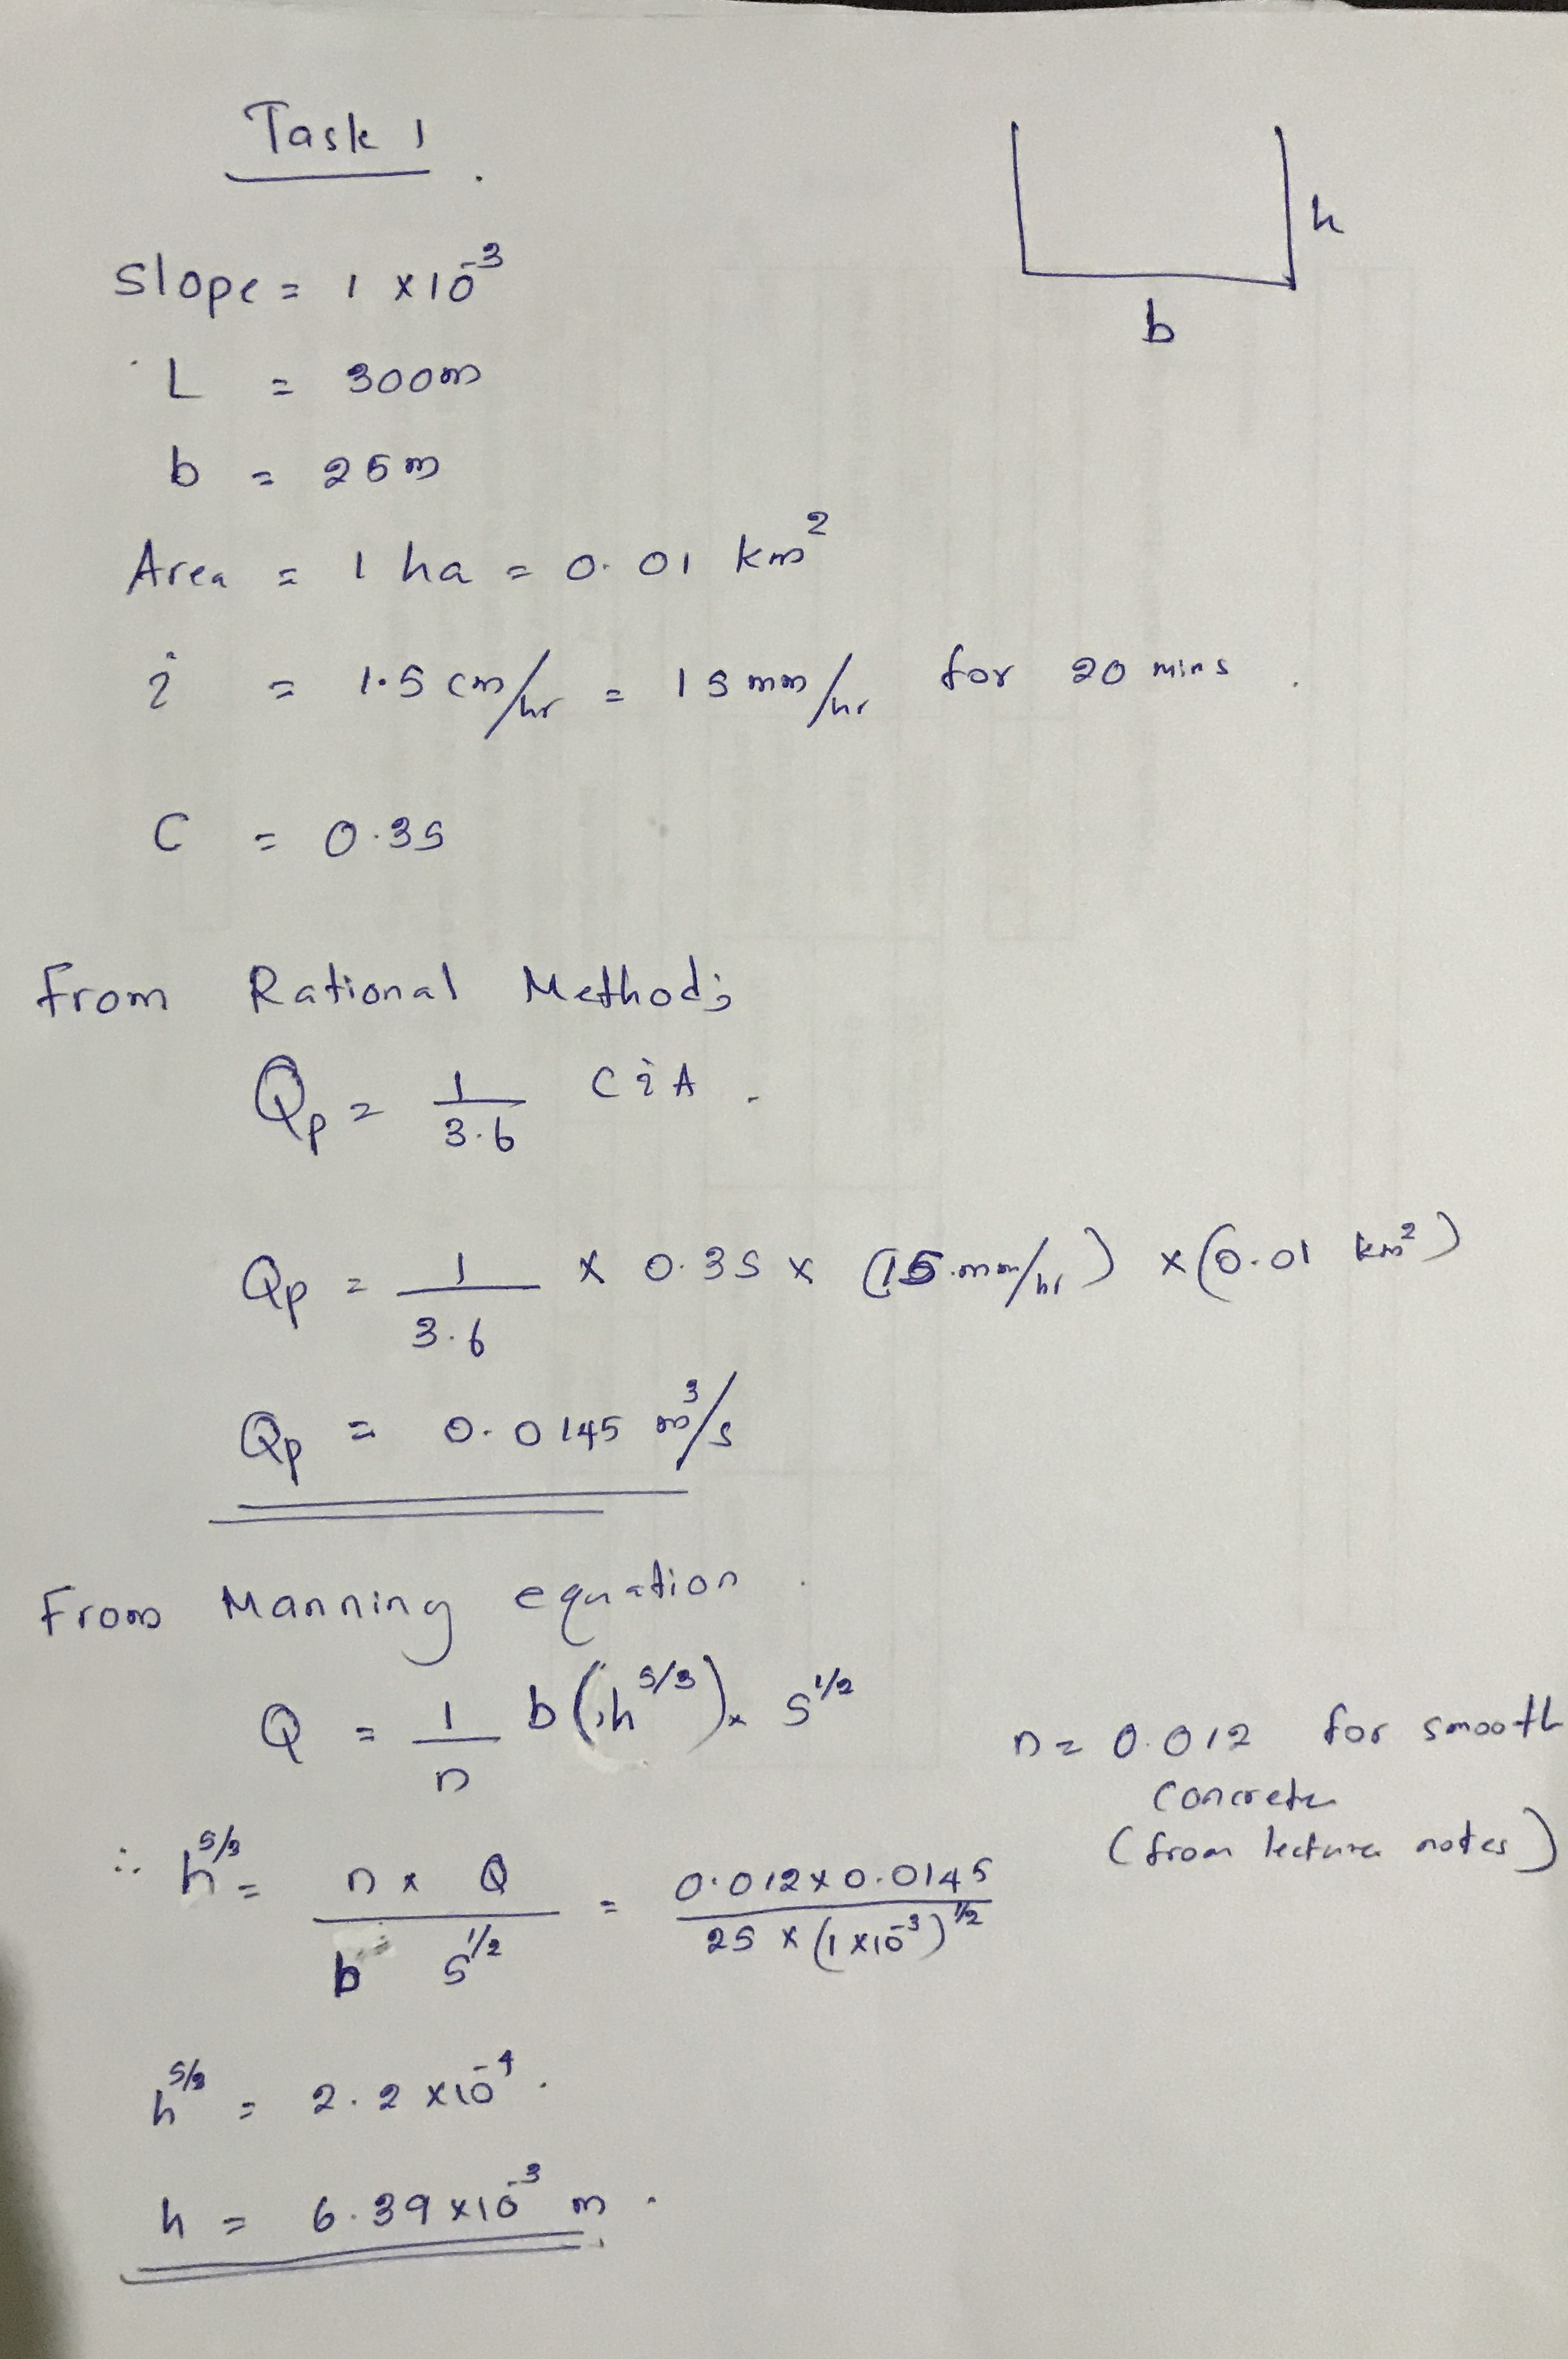 Task 1.
h
b
Slope = 1 × 10⁻³
L = 300m
b = 25m
Area = 1 ha = 0.01 km²
i = 1.5 cm/hr = 15 mm/hr for 20 mins.
C = 0.35
From Rational Method;
Qp = 1/3.6 C i A.
Qp = 1/3.6 × 0.35 × (15 mm/hr) × (0.01 km²)
Qp = 0.0145 m³/s
From Manning equation.
Q = 1/n b(h^5/3) × S^1/2
n = 0.012 for smooth
concrete
(from lecture notes)
∴ h^5/3 = n × Q / b S^1/2 = 0.012 × 0.0145 / 25 × (1 × 10⁻³)^1/2
h^5/3 = 2.2 × 10⁻⁴.
h = 6.39 × 10⁻³ m.